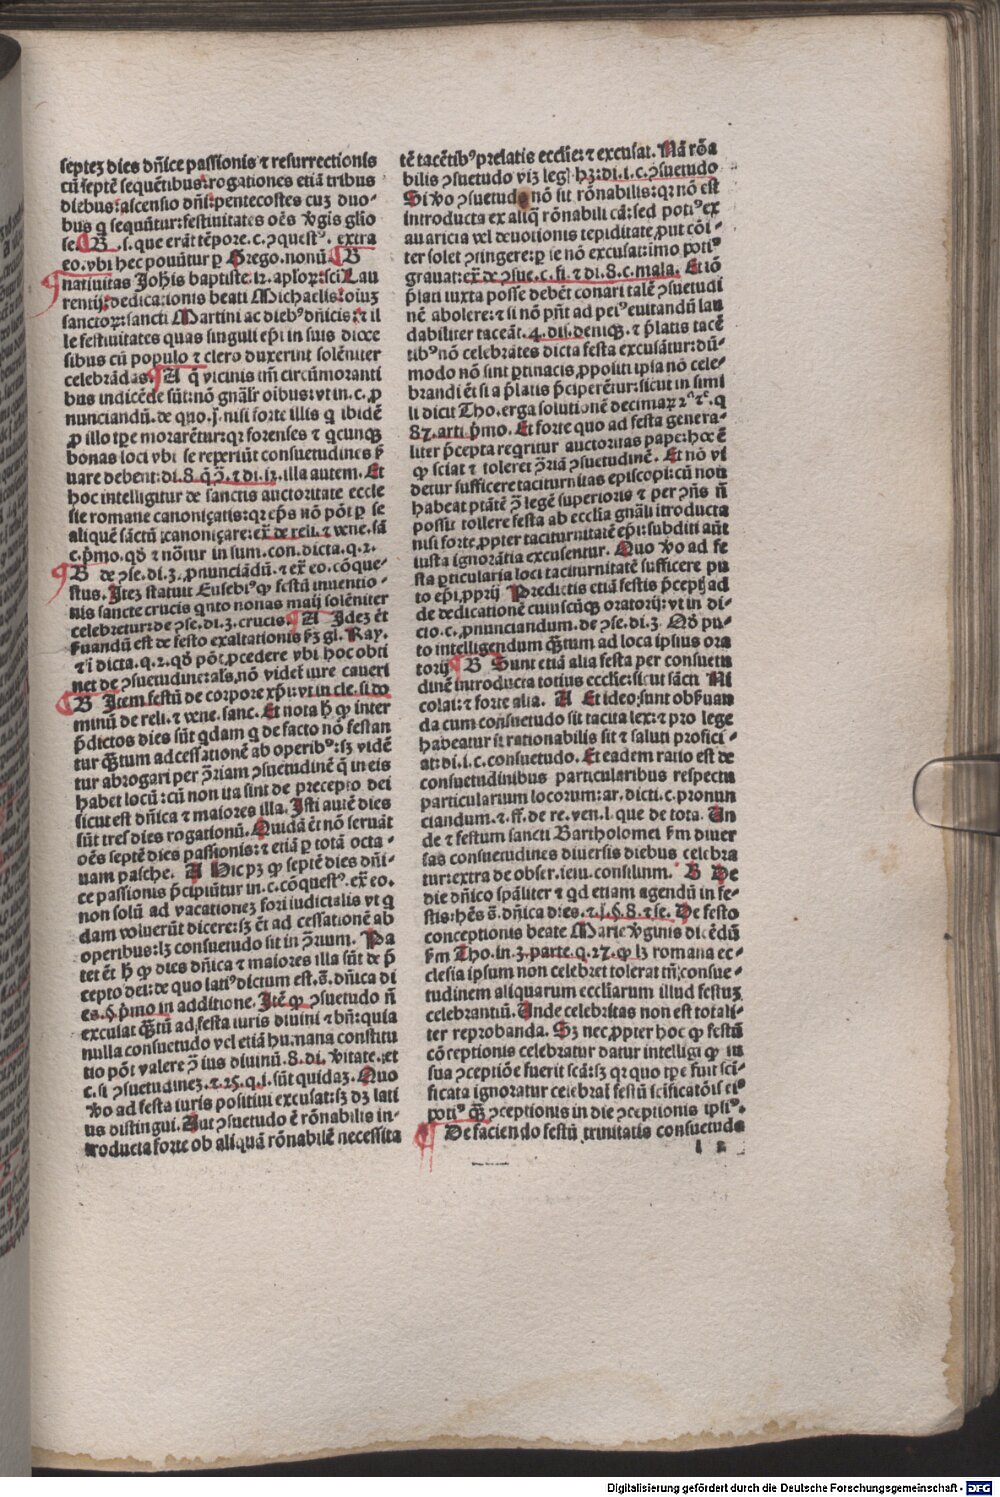 septeȝ dies dñice passionis ⁊ resurrectionis
cū septē sequētibus: rogationes etiā tribus
diebus: ascensio dñi: pentecostes cuȝ duo⸗
bus q̄ sequūtur: festiuitates oēs v̄gis glio
se. B. s. que erāt tēpore. c. ꝯquestꝰ. extra
eo. vbi hec ponūtur ꝑ Grego. nonū. B
natiuitas Johīs baptiste. 12. aplōꝝ: sci Lau
rentij: dedicationis beati Michaelis: oiuȝ
sanctoꝝ: sancti Martini ac diebꝰ dñicis: ⁊ il
le festiuitates quas singuli epī in suis dioce
sibus cū populo ⁊ clero duxerint solēniter
celebrādas. A q̄ vicinis tm̄ circūmoranti
bus indicēde sūt: nō gnāl'r oībus: vt in. c. ꝓ
nunciandū. de quo. j. nisi forte illis q̄ ibidē
ꝓ illo tꝑe morarētur: qr forenses ⁊ q̄cunqȝ
bonas loci vbi se reperiūt consuetudines ẜ
uare debent: di. 8. q̄ ꝯ̄. ⁊ di. 12. illa autem. Et
hoc intelligitur de sanctis auctoritate eccle
sie romane canoniçatis: qr ep̄s nō pōt ꝑ se
aliquē sāctū canoniçare: ex̄ de reli. ⁊ vene. sā
c. p̄mo. qd̄ ⁊ nōtur in sum. con. dicta. q. 2.
B de ꝯse. di. 3. ꝓnunciādū. ⁊ ex̄ eo. cōque⸗
stus. Iteȝ statuit Eusebiꝰ ꝙ festū inuentio⸗
nis sancte crucis q̄nto nonas maij solēniter
celebretur: de ꝯse. di. 3. crucis. A Ideȝ ēt
ẜuandū est de festo exaltationis ẜȝ gl. Ray.
⁊ ī dicta. q. 2. qd̄ pōt ꝓcedere vbi hoc obti
net de ꝯsuetudine: als̄. nō videt̄ iure caueri
B Item festū de corpore xp̄i: vt in cle. si do
minū de reli. ⁊ vene. sanc. Et nota h̄ ꝙ inter
p̄dictos dies sūt q̄dam q̄ de facto nō festan
tur q̄ȝtum ad cessationē ab operibꝰ: sȝ vidē
tur abrogari per ꝯ̄riam ꝯsuetudinē q̄ in eis
habet locū: cū non ita sint de precepto dei
sicut est dñica ⁊ maiores illa. Isti autē dies
sūt tres dies rogationū. Quidā ēt nō seruāt
oēs septē dies passionis: ⁊ etiā ꝑ totā octa⸗
uam pasche. A Hic pȝ ꝙ septē dies dñi⸗
ce passionis p̄cipiūtur in. c. cōquestꝰ. ex̄ eo.
non solū ad vacationeȝ fori iudicialis vt q̄
dam voluerūt dicere: sȝ ēt ad cessationē ab
operibus: lȝ consuetudo sit in ꝯ̄rium. Pa
tet ēt h̄ ꝙ dies dñica ⁊ maiores illa sūt de p̄
cepto dei: de quo latiꝰ dictum est. s̄. dñica di
es. §. p̄mo in additione. Itē ꝙ ꝯsuetudo ñ
excusat q̄ȝtū ad festa iuris diuini ⁊ bñ: quia
nulla consuetudo vel etiā humana constitu
tio pōt valere ꝯ̄ ius diuinū. 8. di. v̄itate. ⁊ et
c. si ꝯsuetudineȝ. ⁊ 25. q. j. sūt quidaȝ. Quo
v̄o ad festa iuris positiui excusat: sȝ dȝ lati
us distingui. Aut ꝯsuetudo ē rōnabilis in⸗
troducta forte ob aliquā rōnabilē necessita
tē tacētibꝰ prelatis ecclie: ⁊ excusat. Nā rōa
bilis ꝯsuetudo viȝ legꝭ hȝ: di. i. c. ꝯsuetudo
Si v̄o ꝯsuetudo nō sit rōnabilis: qr nō est
introducta ex aliq̄ rōnabili cā: sed potiꝰ ex
auaricia vel deuotionis tepiditate ꝓut cōi⸗
ter solet ꝯtingere: ꝑ se nō excusat: imo potiꝰ
grauat: ex̄ de ꝯsue. c. fi. ⁊ di. 8. c. mala. Et iō
p̄lati iuxta posse debēt conari talē ꝯsuetudi
nē abolere: ⁊ si nō pn̄t ad peiꝰ euitandū lau
dabiliter taceāt. 4. dis. deniqȝ. ⁊ p̄latis tacē
tibꝰ nō celebrātes dicta festa excusātur: dū⸗
modo nō sint ꝑtinacis ꝓpoliti ipsa nō cele⸗
brandi ēt si a p̄latis p̄ciperētur: sicut in simi
li dicit Tho. erga solutionē decimaꝝ 2ᵃ ⁊ᵉ. q
87. arti p̄mo. Et forte quo ad festa genera⸗
liter p̄cepta reqritur auctoritas pape: hoc ē
ꝙ sciat ⁊ toleret ꝯ̄riā ꝯsuetudinē. Et nō vi
detur sufficere taciturnitas episcopi: cū non
habeat ptātē ꝯ̄ legē superioris ⁊ per ꝯn̄s ñ
possit tollere festa ab ecclia gnāli itroducta
nisi forte ꝓpter taciturnitatē epī: subditi aūt
iusta ignorātia excusentur. Quo v̄o ad fe
sta ꝑticularia loci taciturnitatē sufficere pu
to epī ꝓprij Predictis etiā festis p̄cepꝭ ad
de dedicationē cuiuscūqȝ oratorij: vt in di⸗
cto. c. ꝓnunciandum. de ꝯse. di. 3. Qd̄ pu⸗
to intelligendum q̄ȝtum ad loca ipsius ora
torij. B Sunt etiā alia festa per consuetu
dinē introducta totius ecclie: sicut sācti Ni
colai: ⁊ forte alia. A Et ideo sunt obẜuan
da cum consuetudo sit tacita lex: ⁊ pro lege
habeatur si rationabilis sit ⁊ saluti profici⸗
at: di. i. c. consuetudo. Et eadem ratio est de
consuetudinibus particularibus respectu
particularium locorum: ar. dicti. c. pronun
ciandum. ⁊ ff. de re. ven. l. que de tota. Un
de ⁊ festum sancti Bartholomei ẜm diuer
sas consuetudines diuersis diebus celebra
tur: extra de obser. ieiu. consilium. B De
die dñico spāliter ⁊ qd etiam agendū in fe⸗
stis: hēs s̄. dñica dies. ⁊. j. §. 8. ⁊ se. De festo
conceptionis beate Marie v̄ginis dicēdū
ẜm Tho. in. 3. parte. q. 27. ꝙ lȝ romana ec⸗
clesia ipsum non celebret tolerat tn̄ consue⸗
tudinem aliquarum ecclīarum illud festuȝ
celebrantiū. Unde celebritas non est totali⸗
ter reprobanda. Sȝ nec ꝓpter hoc ꝙ festū
cōceptionis celebratur datur intelligi ꝙ in
sua ꝯceptiōe fuerit scā: sȝ qr quo tꝑe fuit sci⸗
ficata ignoratur celebrat̄ festū scificatōis eiꝰ
potiꝰ q̄ȝ ꝯceptionis in die ꝯceptionis ipsiꝰ.
De faciendo festū trinitatis consuetudo
l 2
Digitalisierung gefördert durch die Deutsche Forschungsgemeinschaft - DFG